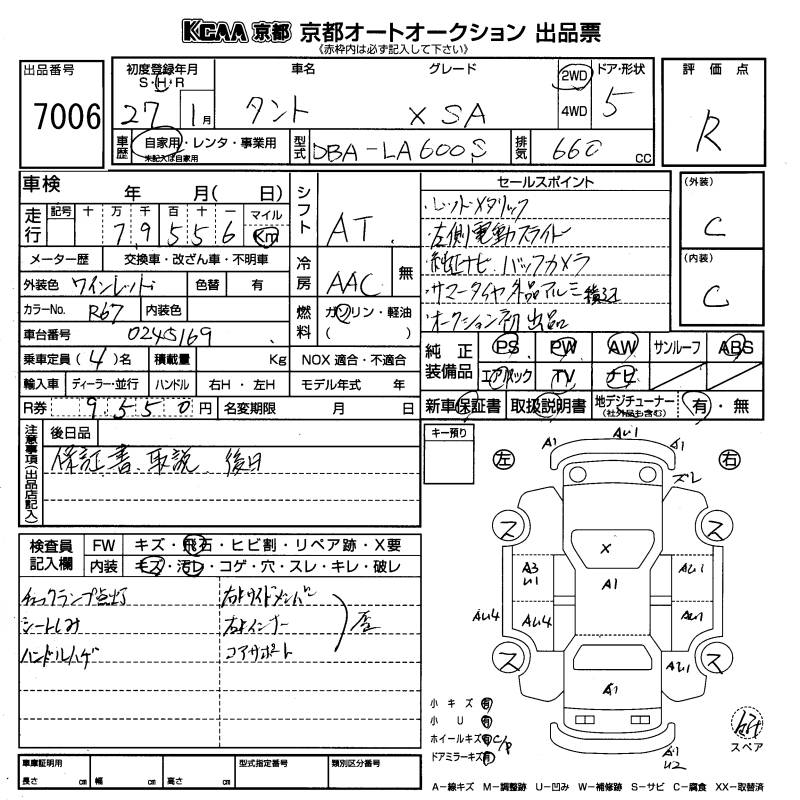 KCAA 京都 京都オートオークション 出品票
《赤枠内は必ず記入して下さい》
出品番号 7006
初度登録年月 S・H・R 27 1月
車名 タント
グレード X SA
2WD 4WD
ドア・形状 5
評価点 R
車歴 自家用・レンタ・事業用 未記入は自家用
型式 DBA-LA600S
排気 660 CC
車検 年 月( 日)
走行 記号 十 万 千 百 十 一 マイル Km
7 9 5 5 6
メーター歴 交換車・改ざん車・不明車
外装色 ワインレッド 色替 有
カラーNo. R67 内装色
車台番号 0245169
乗車定員 (4)名 積載量 Kg NOX 適合・不適合
輸入車 ディーラー・並行 ハンドル 右H・左H モデル年式 年
R券 9550円 名変期限 月 日
シフト AT
冷房 AAC 無
燃料 ガソリン・軽油 ( )
セールスポイント
・レッドメタリック
・左側電動スライド
・純正ナビ バックカメラ
・サマータイヤ外品アルミ積込
・オークション初出品
(外装) C
(内装) C
純正装備品 PS PW AW サンルーフ ABS
エアバック TV ナビ
新車保証書 取扱説明書 地デジチューナー (社外品も含む) 有・無
注意事項(出品店記入)
後日品
保証書、取説、後日
キー預り
検査員記入欄
FW キズ・飛石・ヒビ割・リペア跡・X要
内装 キズ・汚レ・コゲ・穴・スレ・キレ・破レ
チェックランプ点灯 右よりサイドメンバー
シートしみ 右よりインナー
ハンドルハゲ コアサポート
左 右
A1 AU1 A1
ズレ
ス ス
X
A3 U1 A1 AU1
AU4 AU4 AU1
ス ス
AU1
A1
小キズ 有
小U 有
ホイールキズ 有 C/P
ドアミラーキズ 有
A1 U2
スペア
A-線キズ M-調整跡 U-凹み W-補修跡 S-サビ C-腐食 XX-取替済
車庫証明用 長さ cm 幅 cm 高さ cm
型式指定番号 類別区分番号